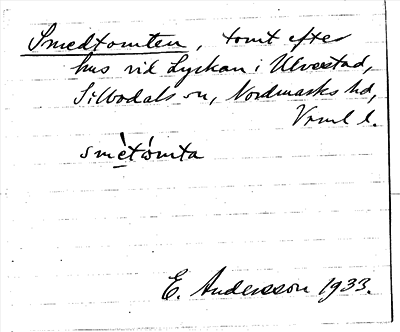 Smedtomten, tomt efter
hus vid Lyckan i Ulverstad,
Silbodals sn, Nordmarks hd,
Vrml l.
smètómta
E. Andersson 1933.